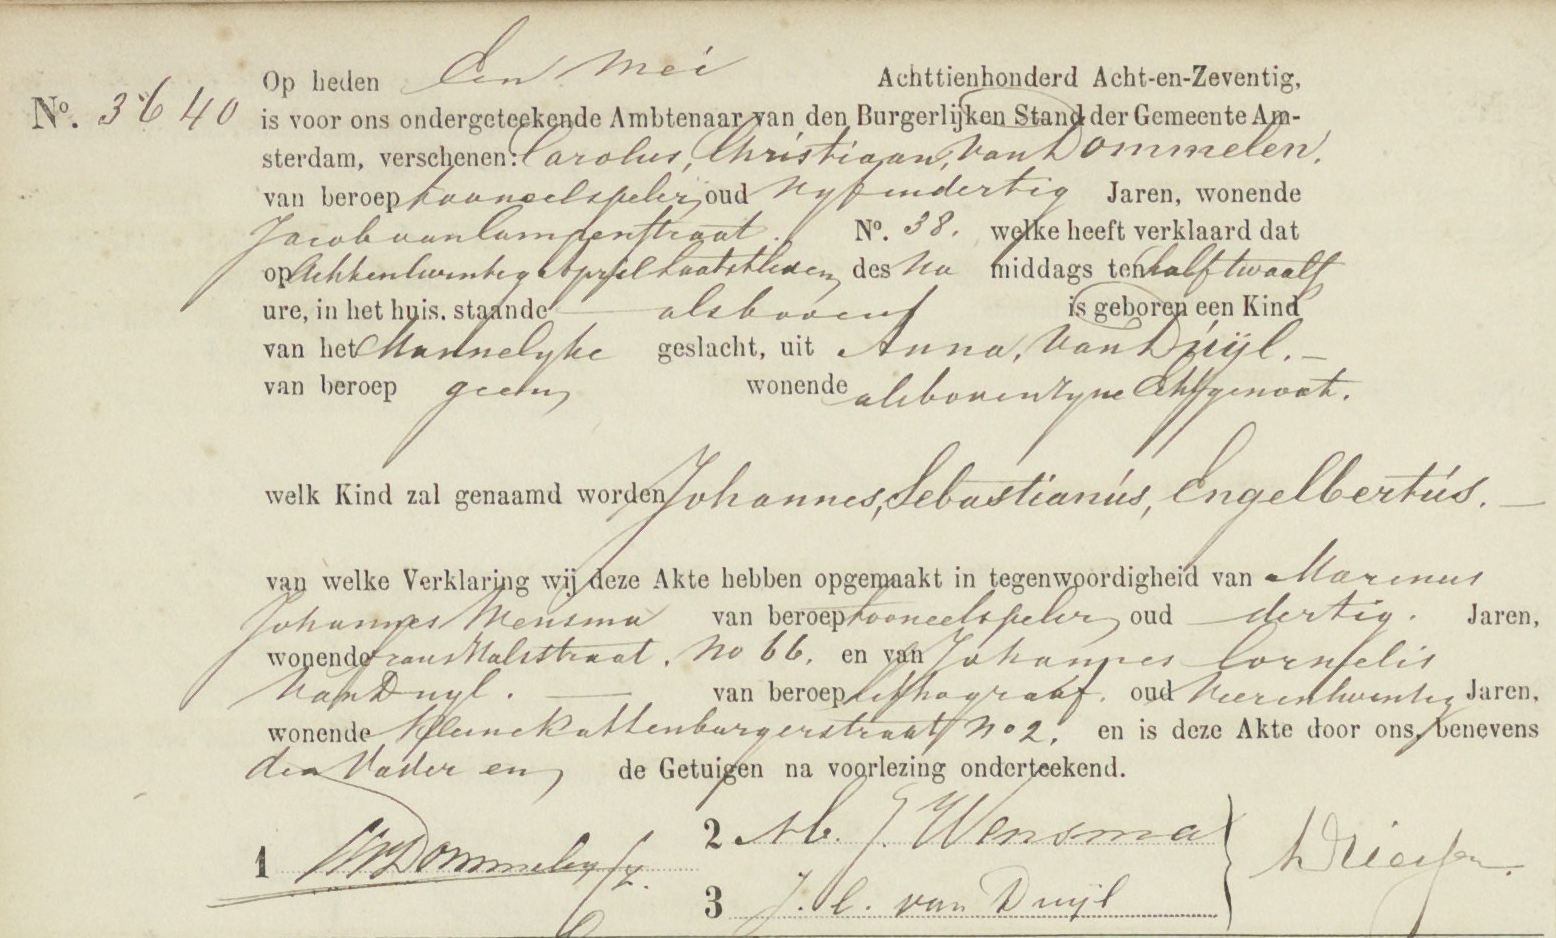 Op heden Een Mei Achttienhonderd Acht-en-Zeventig,
No. 3640 is voor ons ondergeteekende Ambtenaar van den Burgerlijken Stand der Gemeente Am-
sterdam, verschenen: Carolus, Christiaan, van Dommelen,
van beroep tooneelspeler, oud Vyfendertig Jaren, wonende
Jacob van Campenstraat. No. 38. welke heeft verklaard dat
op Achtentwintig April laatstleden, des Na middags ten half twaalf
ure, in het huis, staande alsboven is geboren een Kind
van het Mannelyke geslacht, uit Anna, van Duijl. —
van beroep geen, wonende alsboven zyne Echtgenoot.
welk Kind zal genaamd worden Johannes, Sebastianús, Engelbertús. —
van welke Verklaring wij deze Akte hebben opgemaakt in tegenwoordigheid van Marinus
Johannes Wensma van beroep tooneelspeler, oud dertig. Jaren,
wonende Frans Halsstraat. No 66. en van Johannes Cornelis
van Duyl. — van beroep lithograaf. oud Vierentwintig Jaren,
wonende Kleine Kattenburgerstraat No 2. en is deze Akte door ons, benevens
den Vader en, de Getuigen na voorlezing onderteekend.
1 Dommelen 2 J. Wensma
3 J. C. van Duijl